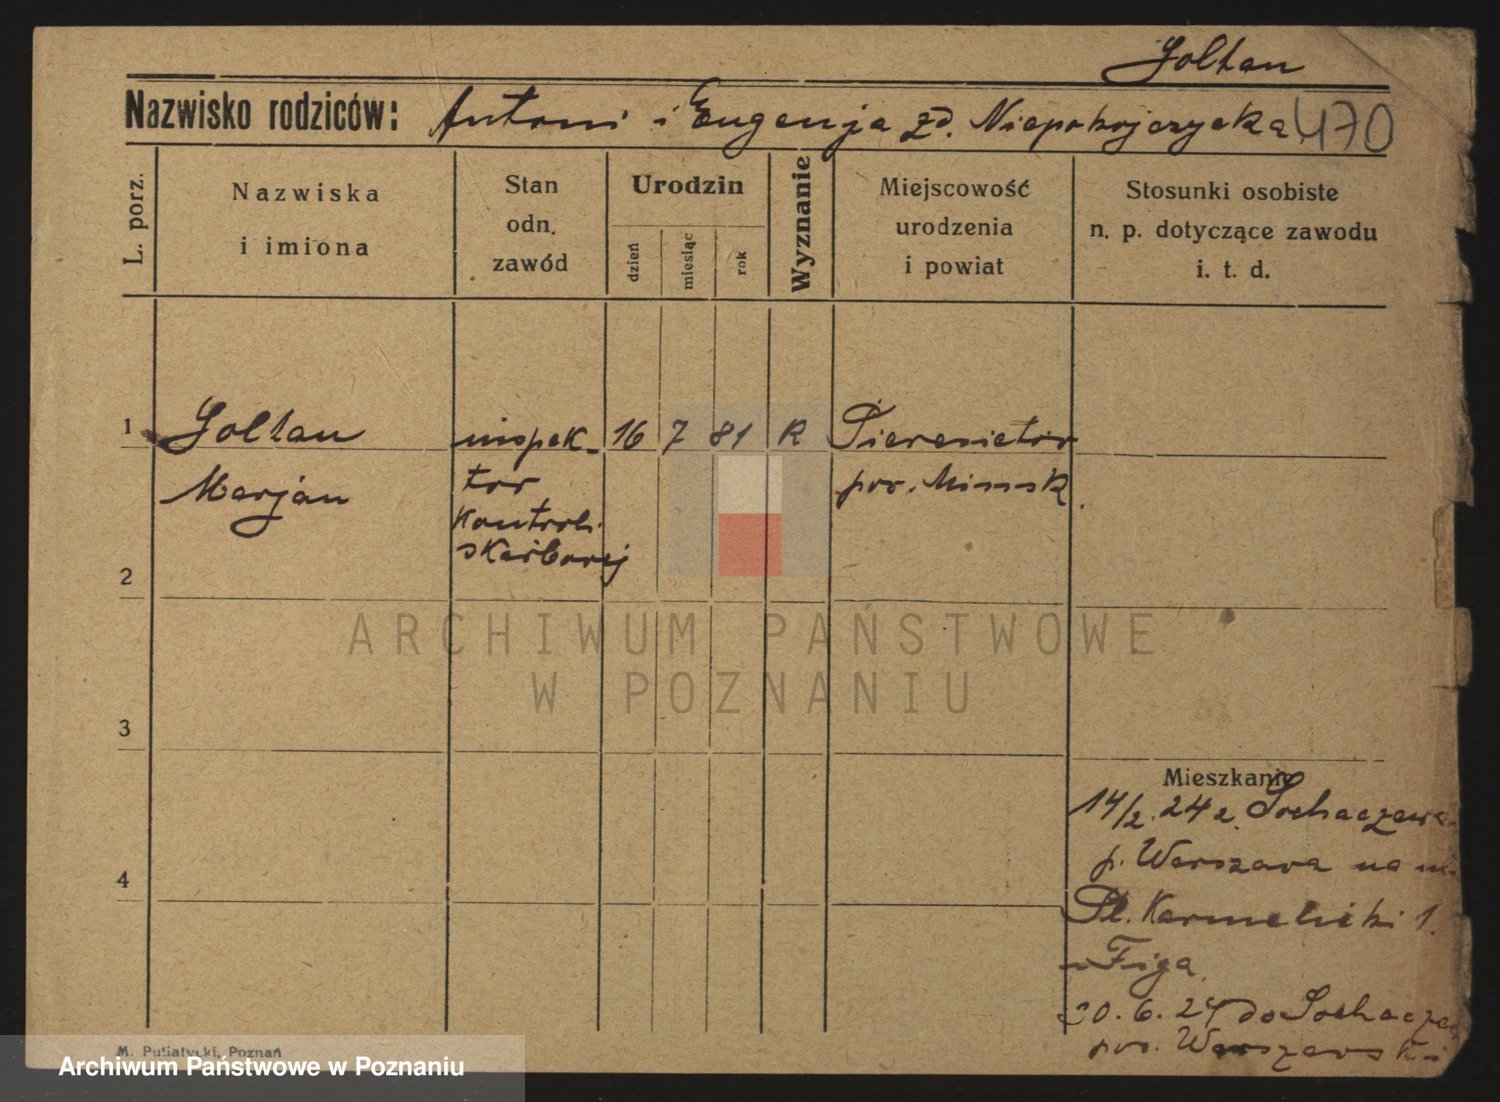 Soltan
Nazwisko rodziców: Antoni i Eugenja zd. Niepokojczycka 470
L. porz.
Nazwiska
i imiona
Stan
odn.
zawód
Urodzin
dzień
miesiąc
rok
Wyznanie
Miejscowość
urodzenia
i powiat
Stosunki osobiste
n. p. dotyczące zawodu
i. t. d.
1 Soltan inspek- 16 7 81 R
Marjan tor pow. Minsk
kontroli
skarbowej
2
ARCHIWUM PAŃSTWOWE
W POZNANIU
3
Mieszkanie
14/2. 24 z Sochaczewa
p. Warszawa na
4
Pl. Karmelicki 1.
u Figa.
20. 6. 24 do Sochaczew
pow. Warszawski
M. Putiatycki, Poznań
Archiwum Państwowe w Poznaniu